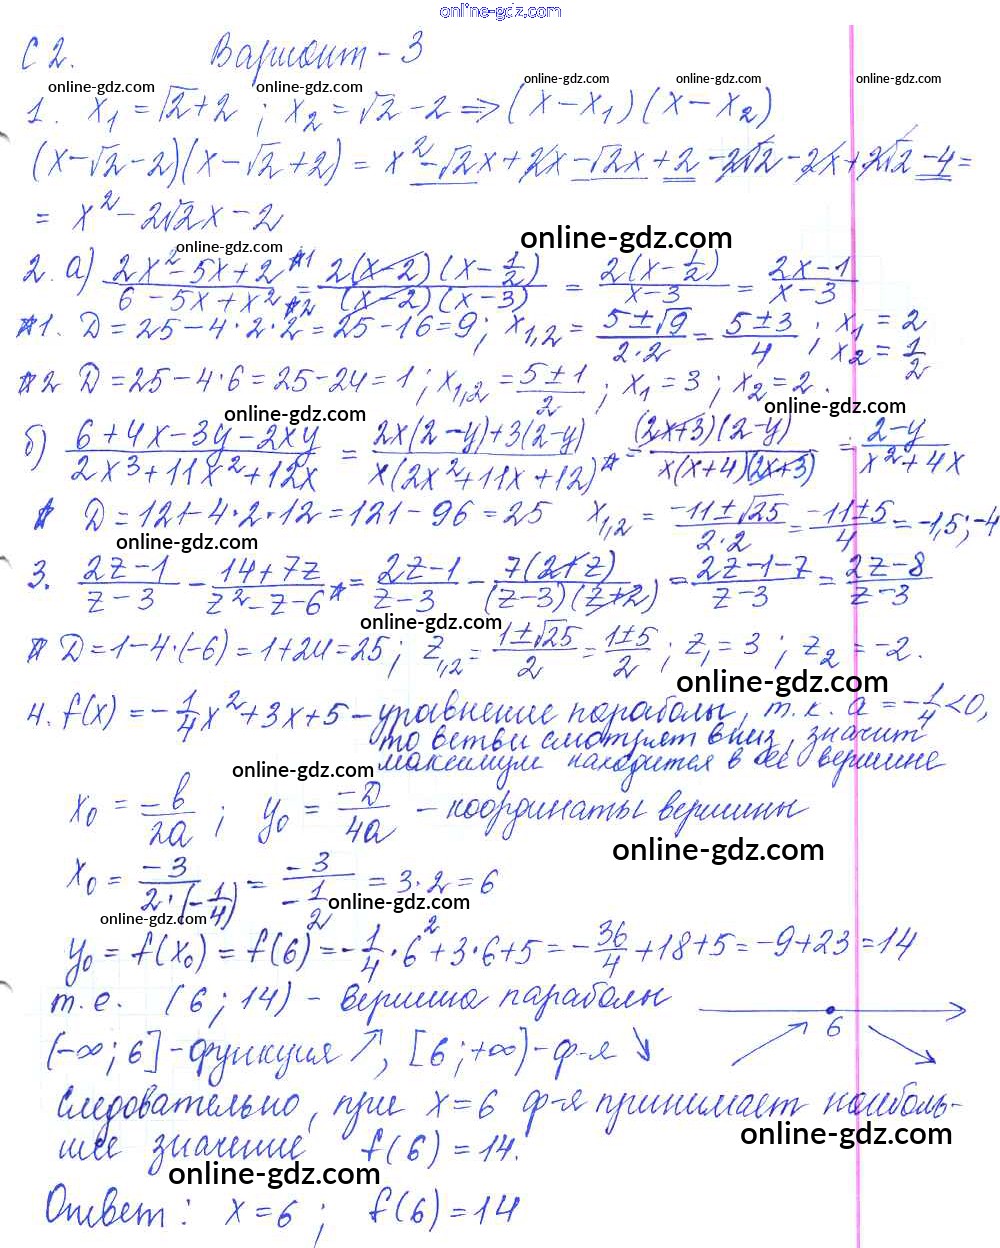 online-gdz.com
С 2. Вариант - 3
online-gdz.com online-gdz.com online-gdz.com online-gdz.com online-gdz.com
1. x₁ = √2+2 ; x₂ = √2 - 2 ⇒ (x - x₁)(x - x₂)
(x-√2-2)(x-√2+2) = x²-√2x+2x-√2x+2-2√2-2x+2√2-4=
= x² - 2√2x - 2
online-gdz.com online-gdz.com
2. а) (2x²-5x+2 *1)/(6-5x+x² *2) = (2(x-2)(x-1/2))/((x-2)(x-3)) = (2(x-1/2))/(x-3) = (2x-1)/(x-3)
*1. D=25-4·2·2=25-16=9; x₁,₂ = (5±√9)/(2·2) = (5±3)/4 ; x₁ = 2 x₂ = 1/2
*2 D=25-4·6=25-24=1; x₁,₂ = (5±1)/2 ; x₁=3; x₂=2.
online-gdz.com online-gdz.com
б) (6+4x-3y-2xy)/(2x³+11x²+12x) = (2x(2-y)+3(2-y))/(x(2x²+11x+12)*) = ((2x+3)(2-y))/(x(x+4)(2x+3)) = (2-y)/(x²+4x)
* D=121-4·2·12=121-96=25 x₁,₂ = (-11±√25)/(2·2) = (-11±5)/4 = -1,5; -4
online-gdz.com
3. (2z-1)/(z-3) - (14+7z)/(z²-z-6*) = (2z-1)/(z-3) - (7(2+z))/((z-3)(z+2)) = (2z-1-7)/(z-3) = (2z-8)/(z-3)
online-gdz.com
* D=1-4·(-6)=1+24=25; z₁,₂ = (1±√25)/2 = (1±5)/2 ; z₁=3 ; z₂ = -2.
online-gdz.com
4. f(x) = -1/4x²+3x+5 - уравнение параболы, т.к. a = -1/4 <0,
то ветви смотрят вниз, значит
максимум находится в её вершине
online-gdz.com
x₀ = -b/2a ; y₀ = -D/4a - координаты вершины
online-gdz.com
x₀ = -3/(2·(-1/4)) = -3/(-1/2) = 3·2=6
online-gdz.com online-gdz.com
y₀ = f(x₀) = f(6) = -1/4·6²+3·6+5 = -36/4+18+5 = -9+23 = 14
т.е. (6 ; 14) - вершина параболы
6
(-∞; 6] - функция ↗, [6 ; +∞) - ф-я ↘
следовательно, при x=6 ф-я принимает наиболь-
шее значение f(6) = 14.
online-gdz.com online-gdz.com
Ответ: x=6 ; f(6) = 14